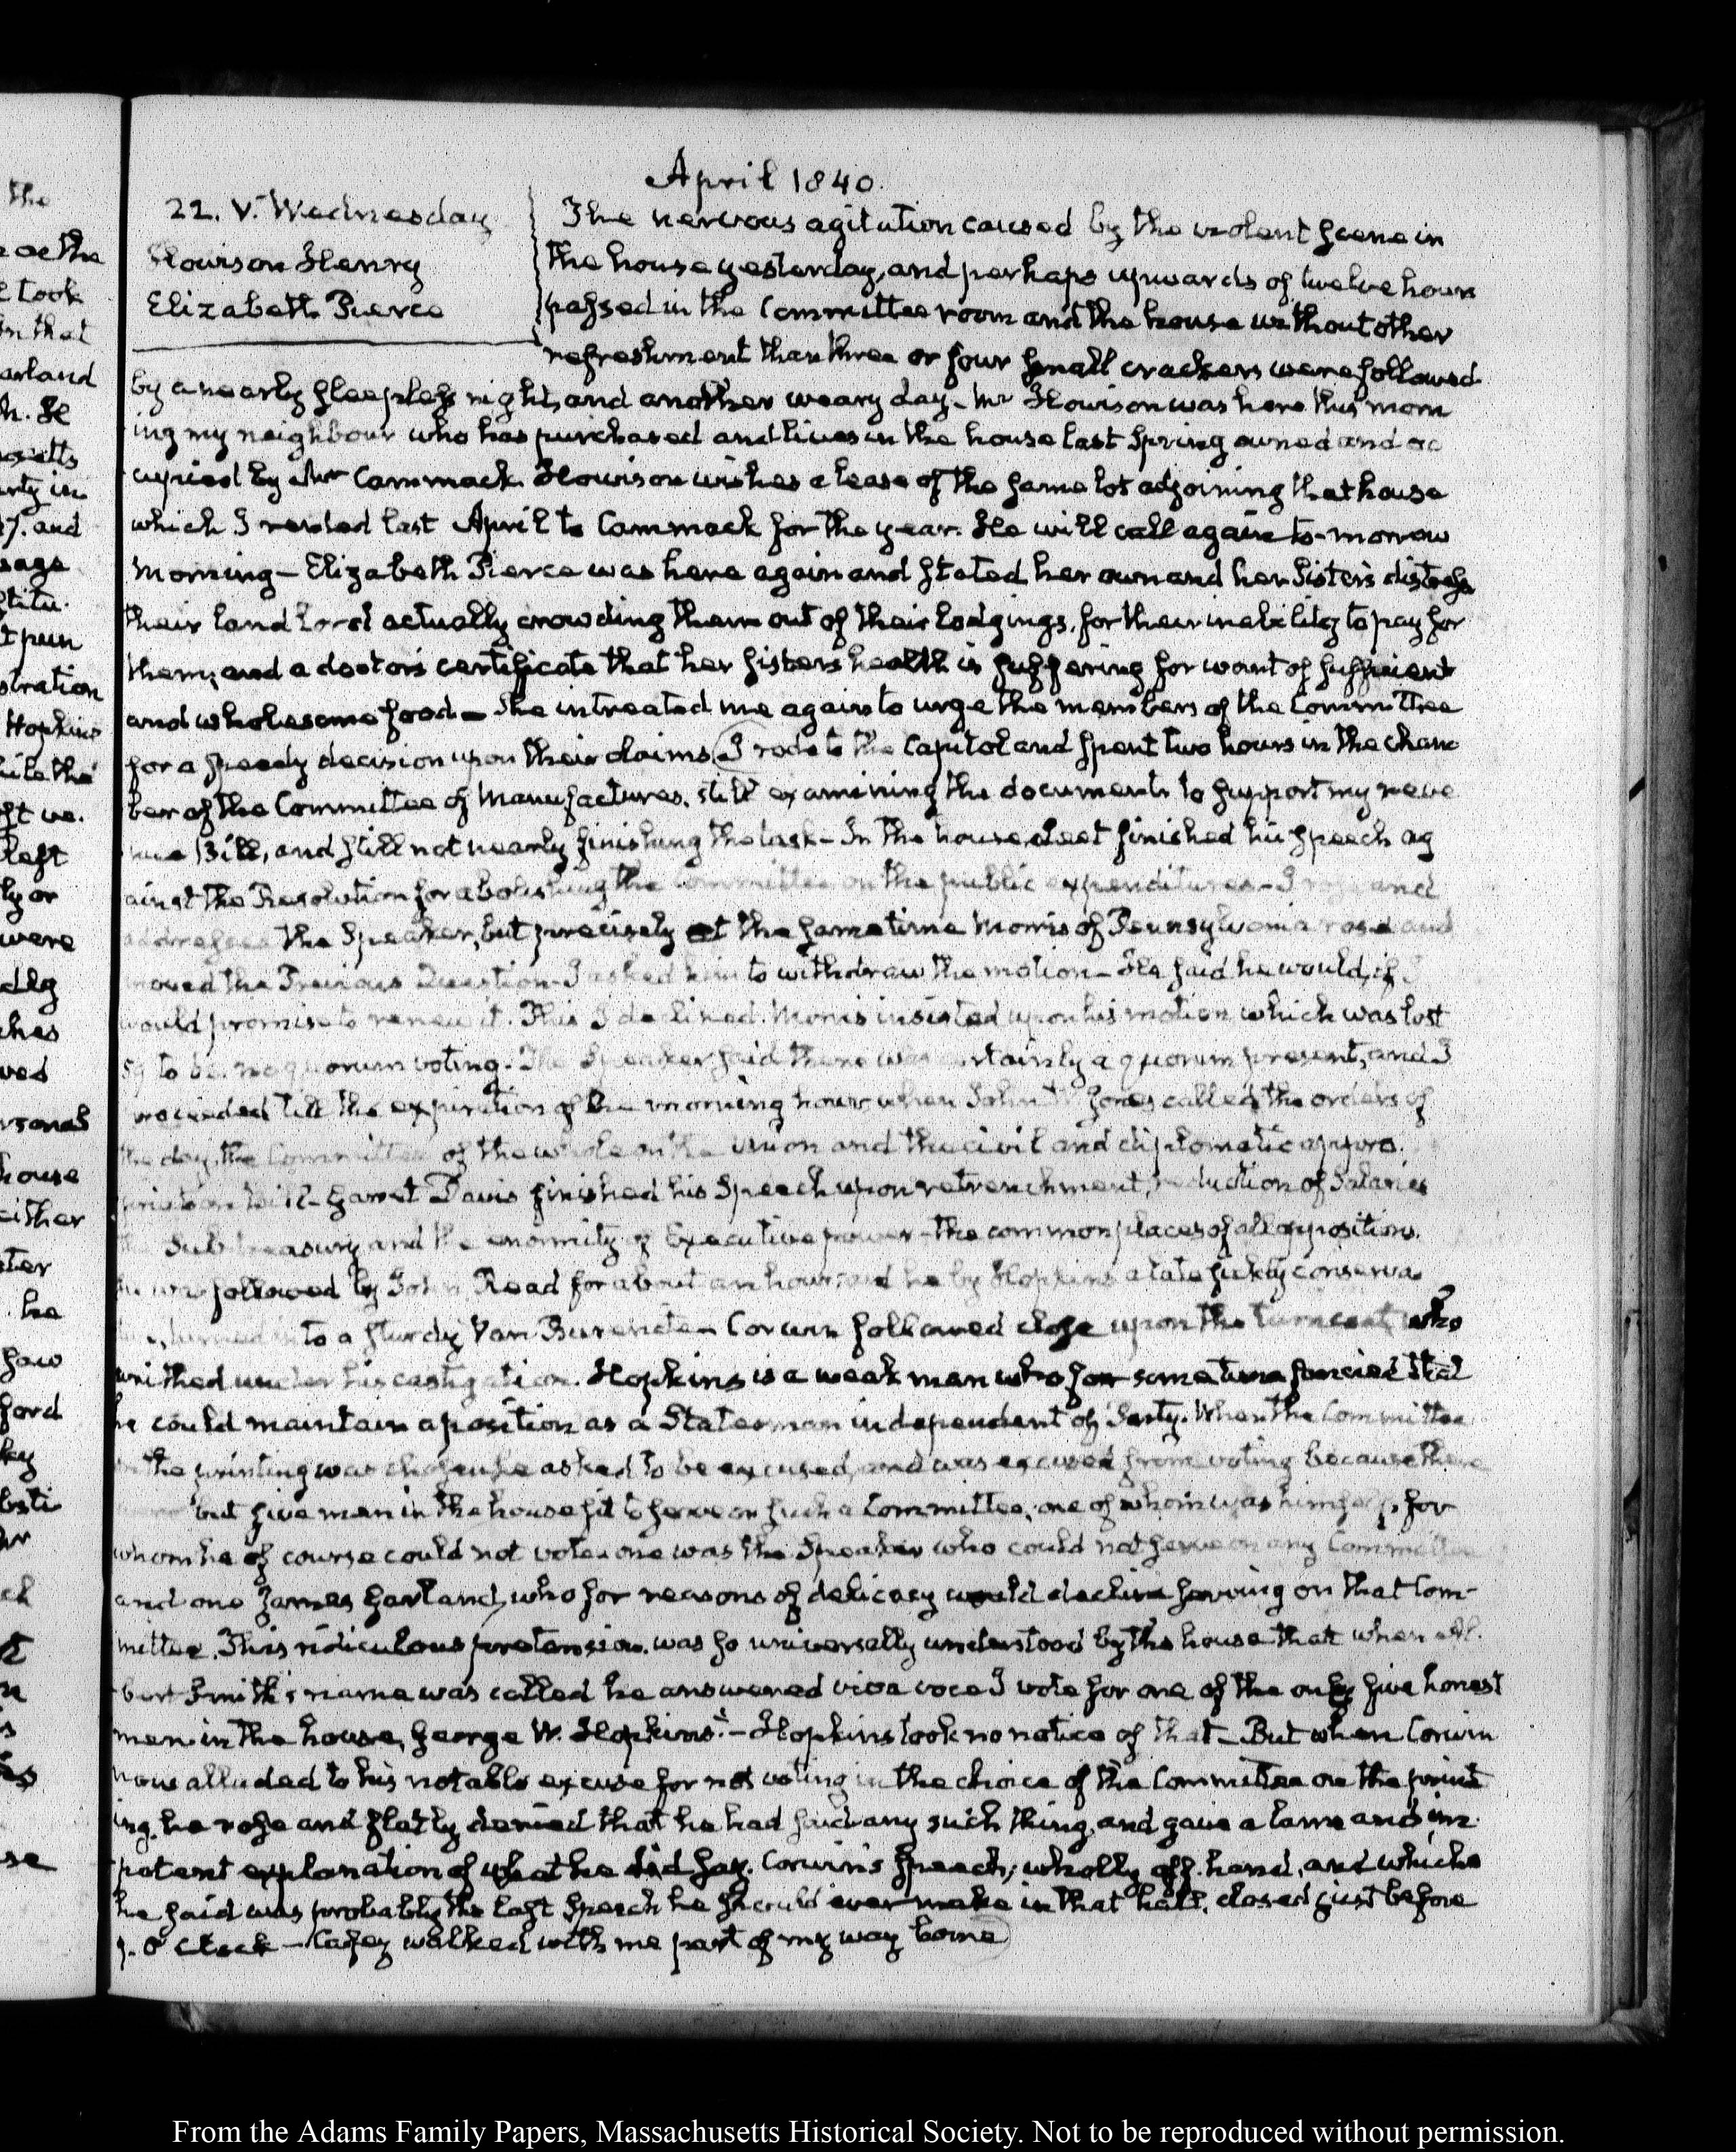 April 1840.
22. V. Wednesday
Howison Henry
Elizabeth Pierce
The nervous agitation caused by the violent scene in
the house yesterday, and perhaps upwards of twelve hours
passed in the Committee room and the house without other
refreshment than three or four small crackers were followed
by a nearly sleepless night, and another weary day. Mr Howison was here this morn
ing my neighbour who has purchased and lives in the house last Spring owned and oc
cupied by Mr Cammack. Howison wishes a lease of the same lot adjoining that house
which I rented last April to Cammack for the year. He will call again to-morrow
morning – Elizabeth Pierce was here again and stated her own and her Sister's distress
their land lord actually crowding them out of their lodgings, for their inability to pay for
them; and a doctor's certificate that her sisters health is suffering for want of sufficient
and wholesome food – She intreated me again to urge the members of the Committee
for a speedy decision upon their claims. I rode to the Capitol and spent two hours in the cham
ber of the Committee of Manufactures, still examining the documents to support my reve
nue Bill, and still not nearly finishing the task – In the house, finished his speech ag
ainst the Resolution for abolishing the Committee on the public expenditures – I rose and
addressed the Speaker, but precisely at the same time Morris of Pennsylvania rose and
moved the Previous Question – I asked him to withdraw the motion – He said he would, if I
would promise to renew it. This I declined. Morris insisted upon his motion, which was lost
59 to 62. no quorum voting. The Speaker said there was certainly a quorum present, and I
proceeded till the expiration of the morning hour, when John W Jones called the orders of
the day, the Committee of the whole on the Union and the civil and diplomatic appro.
priation bill – Garret Davis finished his Speech upon retrenchment, reduction of Salaries
the Sub-treasury and the enormity of Executive power – the common places of all opposition.
he was followed by John Read for about an hour; and he by Hopkins a late sickly conserva
tive, turned into a sturdy Van Burenite – Corwin followed close upon the turncoat who
writhed under his castigation. Hopkins is a weak man who for some time fancied that
he could maintain a position as a Statesman independent of Party. When the Committee
on the printing was chosen he asked to be excused, and was excused from voting because there
were but five men in the house fit to serve on such a Committee; one of whom was himself, for
whom he of course could not vote. one was the Speaker who could not serve on any Committee
and one James Garland, who for reasons of delicacy would decline serving on that Com-
mittee. This ridiculous pretension was so universally understood by the house that when Al.
bert Smith's name was called he answered viva voce I vote for one of the only five honest
men in the house, George W. Hopkins. – Hopkins took no notice of that – But when Corwin
now alluded to his notable excuse for not voting in the choice of the Committee on the print
ing. he rose and flatly denied that he had said any such thing, and gave a lame and im
potent explanation of what he did say. Corwin's Speech, wholly off hand, and which
he said was probably the last Speech he should ever make in that hall, closed just before
o'clock – Casey walked with me part of my way home
From the Adams Family Papers, Massachusetts Historical Society. Not to be reproduced without permission.